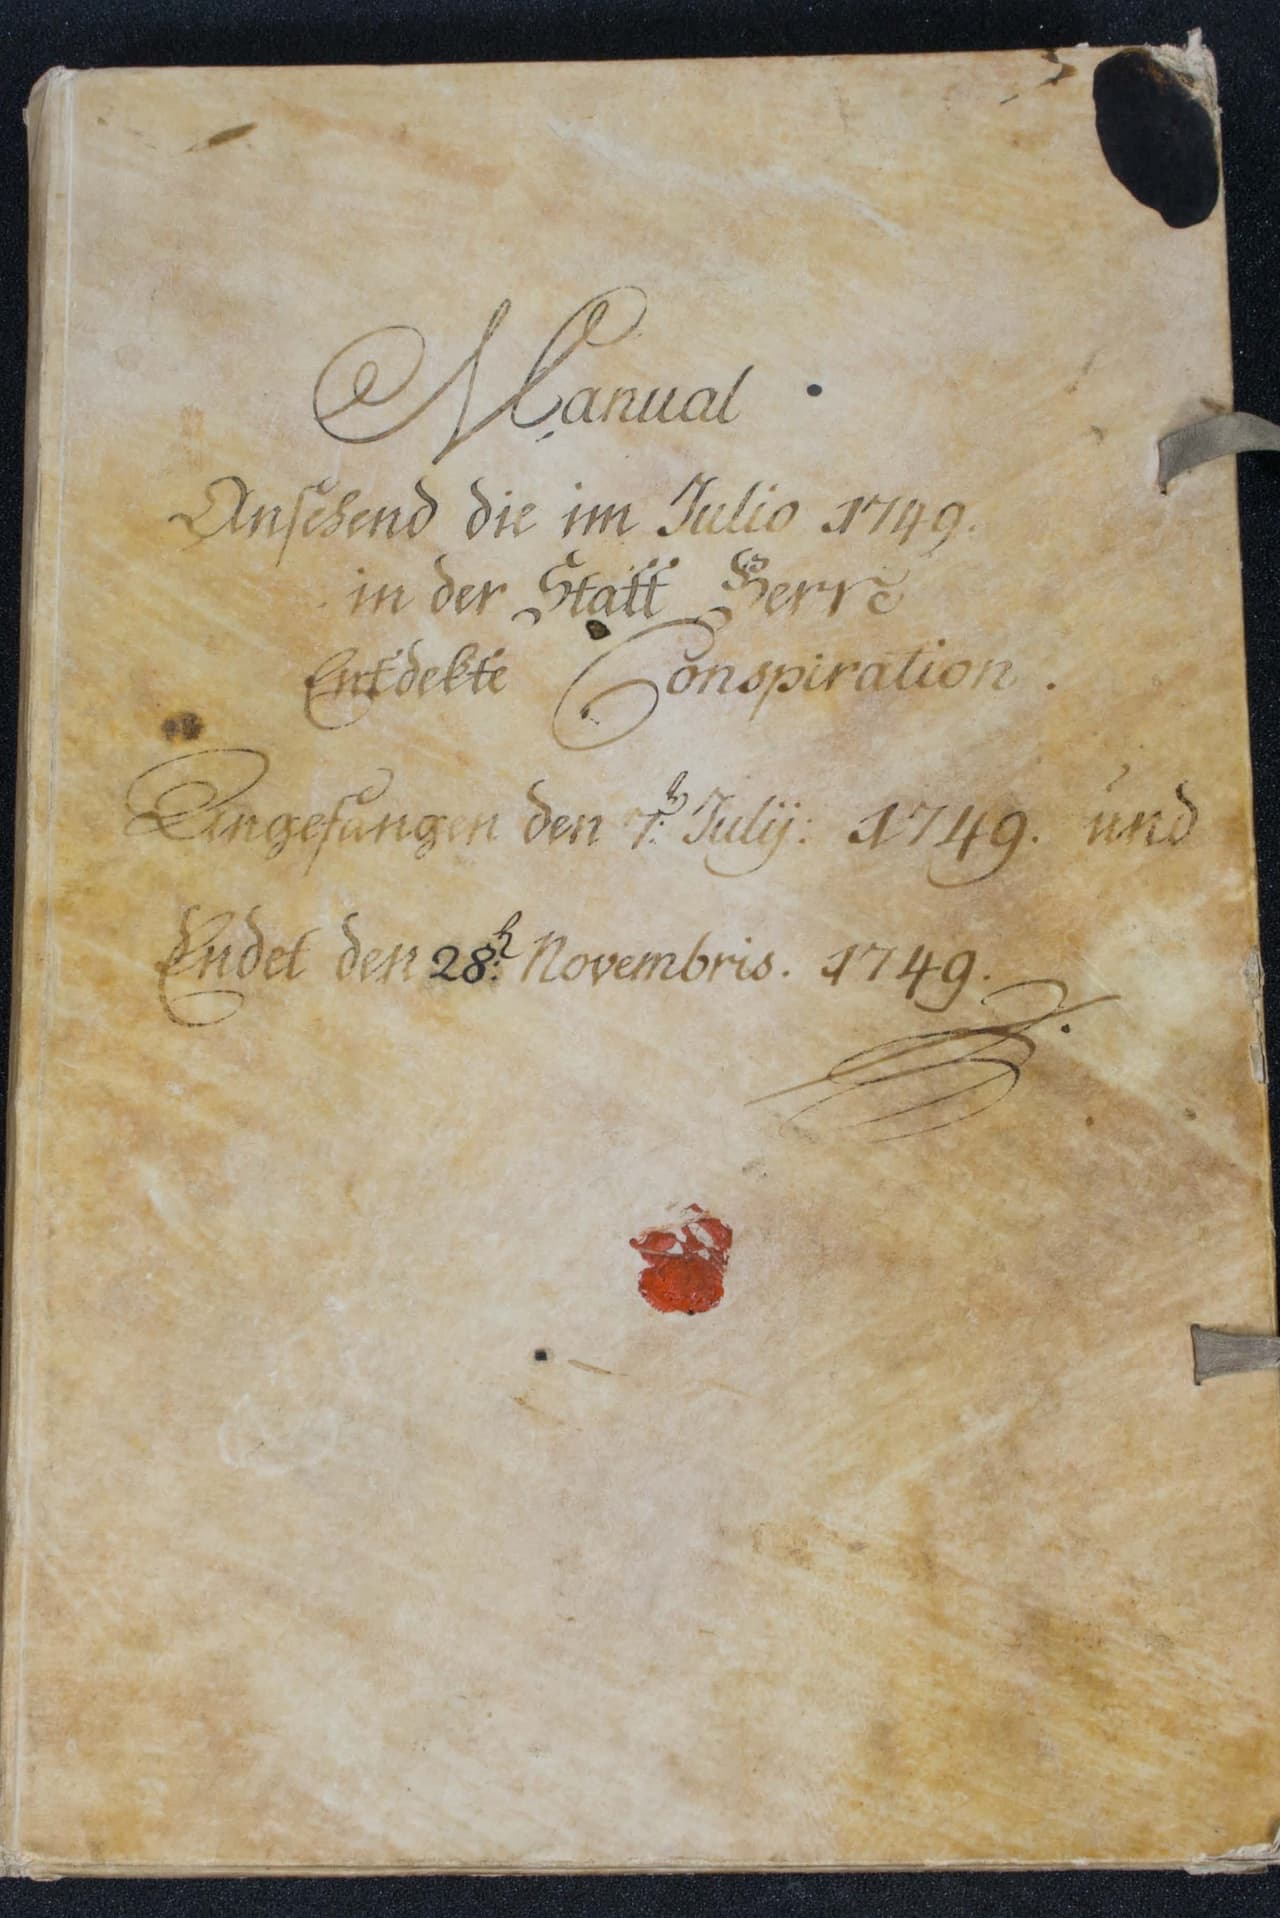 Manual
Ansehend die im Julio 1749.
in der Statt Bern
Entdekte Conspiration.
Angefangen den 7.t Julij: 1749. und
Endet den 28.t Novembris. 1749.